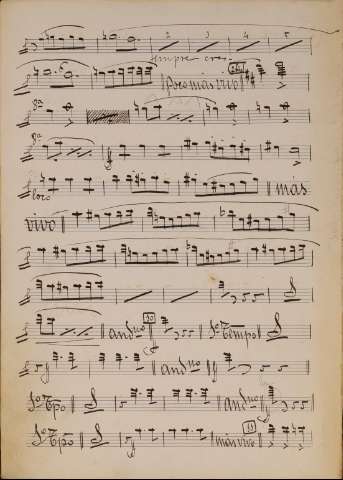 2 3 4 5
siempre cres.
Poco más vivo
8ª
8ª
loco más
vivo
10 andno 1º Tempo
andno
1º Tpo andno
1º Tpo más vivo 11